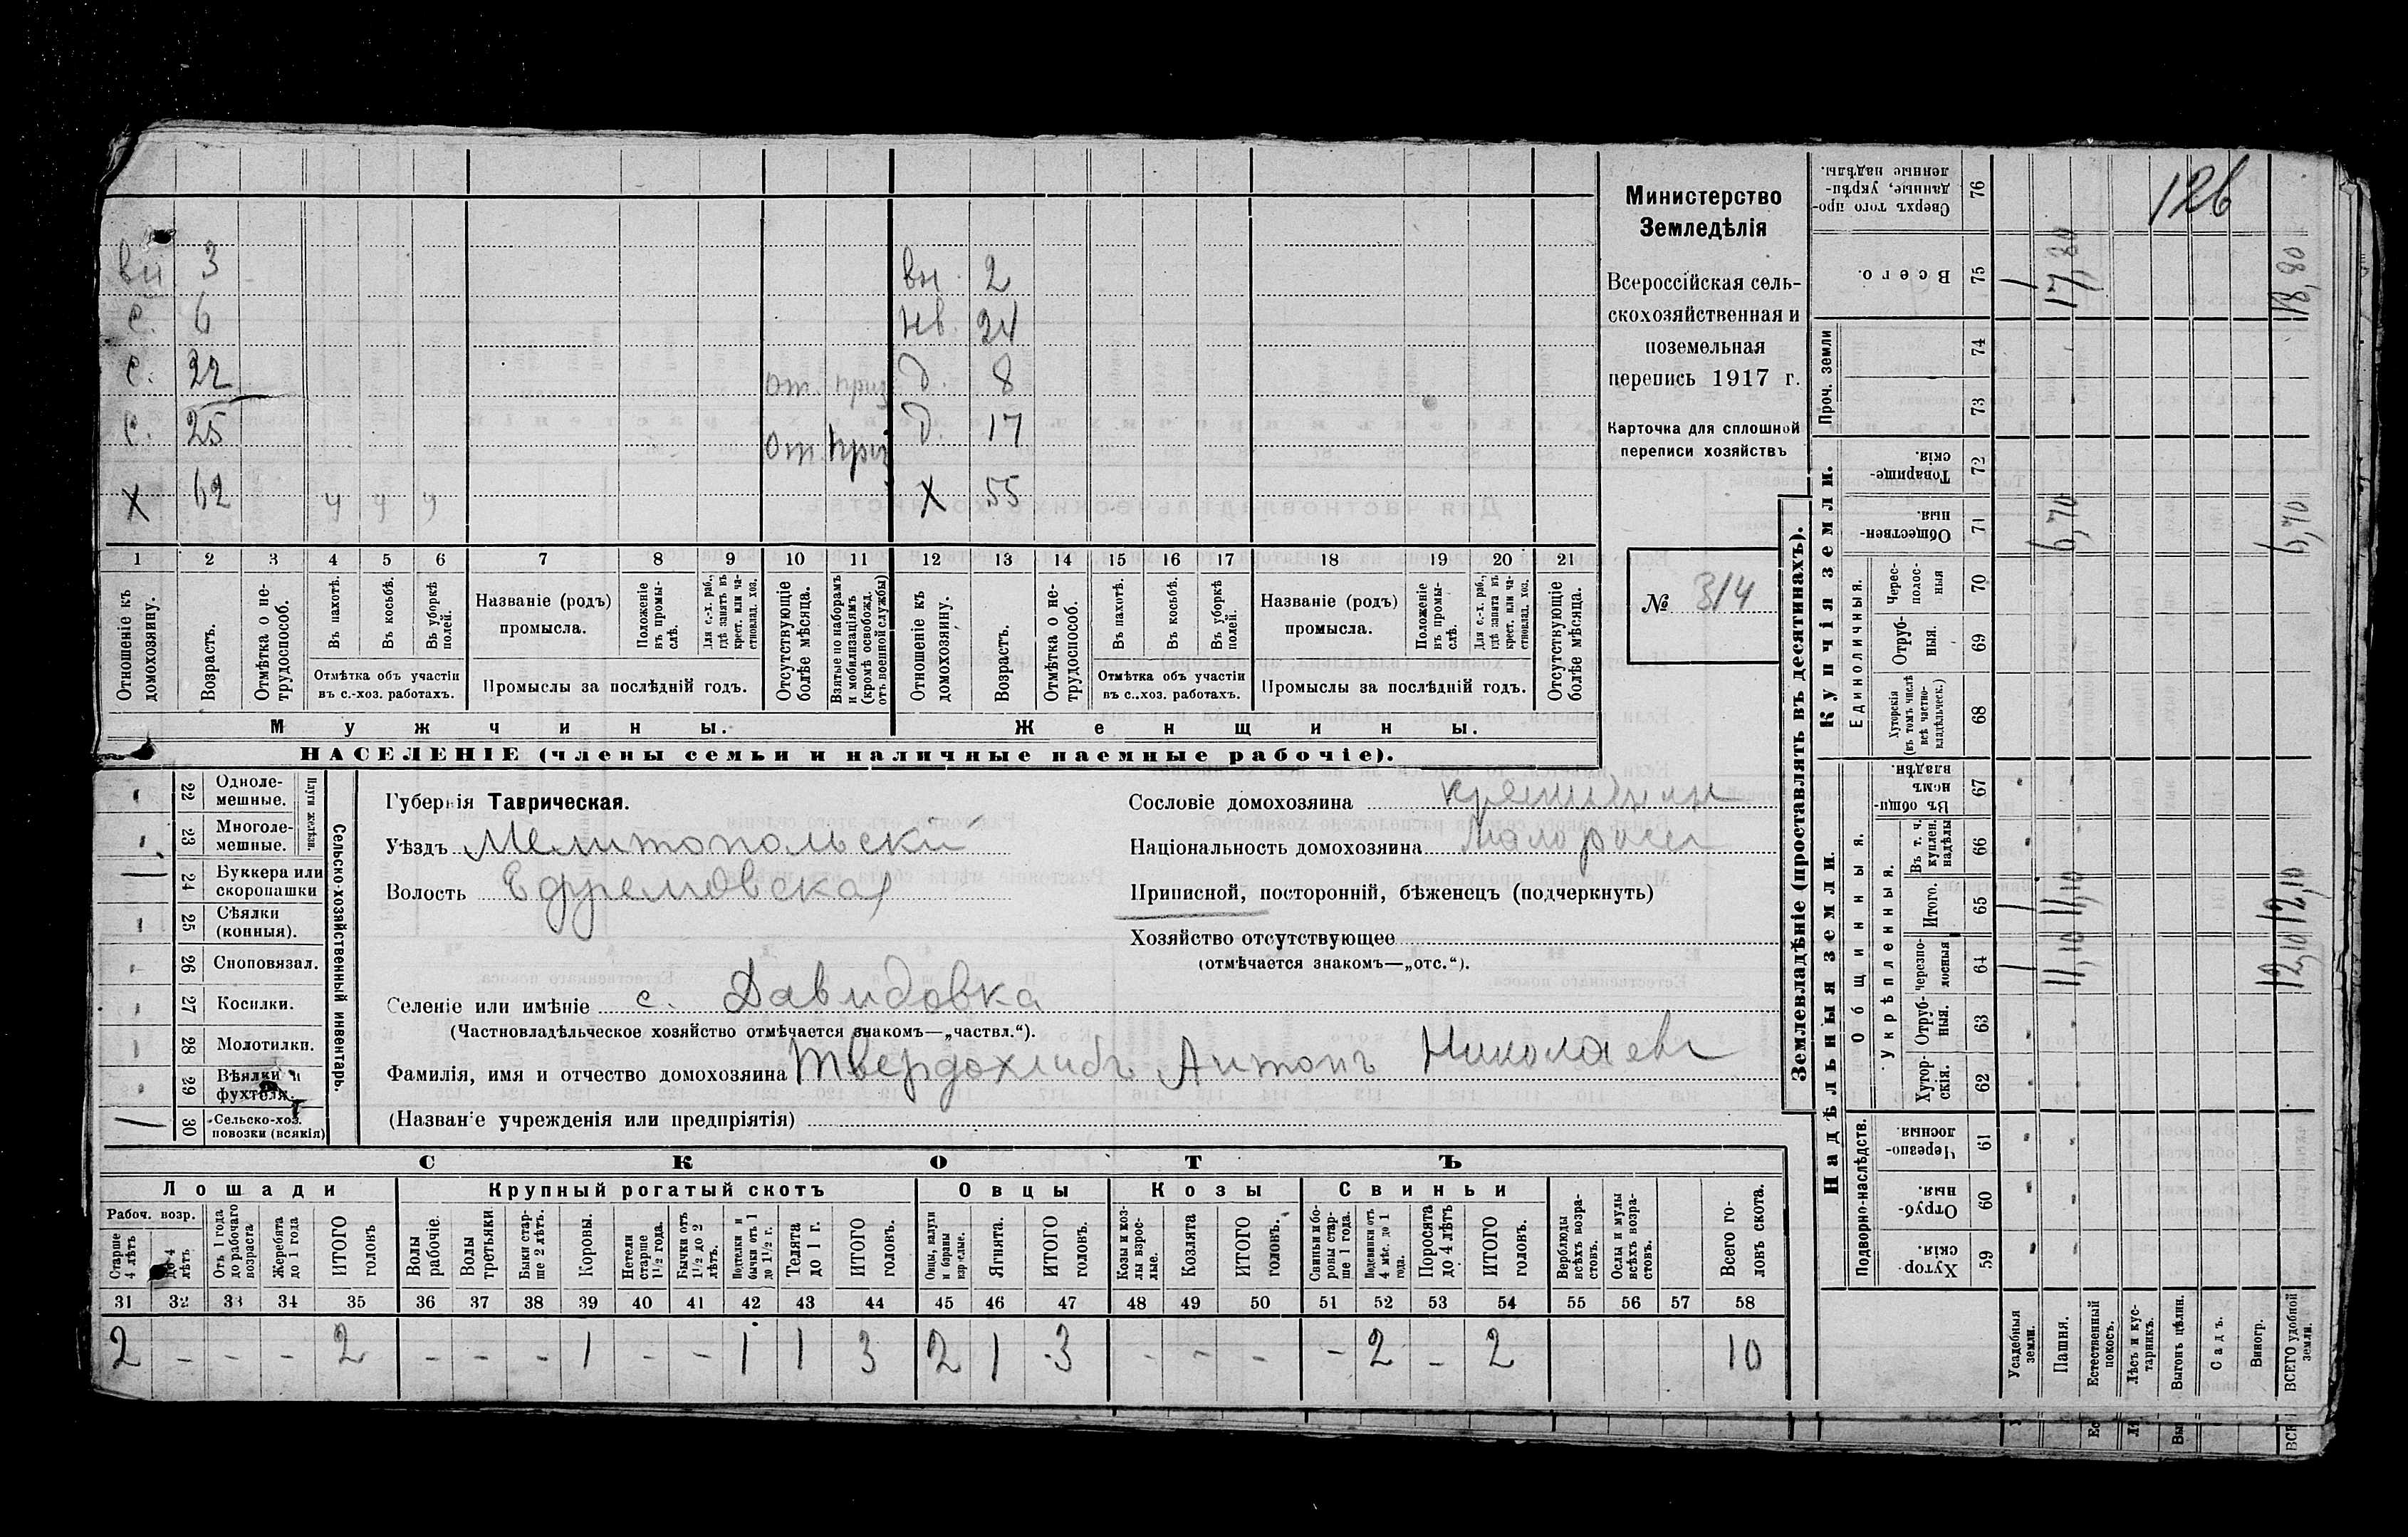 126
Министерство
Земледѣлія
Всероссійская сель-
скохозяйственная и
поземельная
перепись 1917 г.
Карточка для сплошной
переписи хозяйствъ
№ 314
вн 3 вн. 2
с. 6 нв. 24
с. 22 от. приз д. 8
с. 25 от. приз д. 17
х 62 у у у х 55
1 2 3 4 5 6 7 8 9 10 11 12 13 14 15 16 17 18 19 20 21
Отношеніе къ домохозяину.
Возрастъ.
Отмѣтка о не-трудоспособ.
Въ пахотѣ.
Въ косьбѣ.
Въ уборкѣ полей.
Отмѣтка объ участіи
въ с.-хоз. работахъ.
Названіе (родъ)
промысла.
Положеніе въ промы-слѣ.
Для с.-х. раб., гдѣ занятъ въ крест. или ча-стновлад. хоз.
Промыслы за послѣдній годъ.
Отсутствующіе болѣе мѣсяца.
Взятые по наборамъ и мобилизаціямъ (кромѣ освобожд. отъ военной службы)
Отношеніе къ домохозяину.
Возрастъ.
Отмѣтка о не-трудоспособ.
Въ пахотѣ.
Въ косьбѣ.
Въ уборкѣ полей.
Отмѣтка объ участіи
въ с..хоз. работахъ.
Названіе (родъ)
промысла.
Положеніе въ промы-слѣ.
Для с.-х. раб., гдѣ занята въ крест. или ча-стновлад. хоз.
Промыслы за послѣдній годъ.
Отсутствующіе болѣе мѣсяца.
Мужчины. Женщины.
НАСЕЛЕНІЕ (члены семьи и наличные наемные рабочіе).
Сельско-хозяйственный инвентарь.
Плуги желѣзн.
22 Одноле-мешные.
23 Многоле-мешные.
24 Буккера или скоропашки
25 Сѣялки (конныя).
26 Сноповязал.
27 Косилки.
28 Молотилки.
29 Вѣялки и фухтеля.
30 Сельско-хоз. повозки (всякія)
Губернія Таврическая.
Уѣздъ Мелитопольскій
Волость Ефремовская
Сословіе домохозяина крестьянин
Національность домохозяина Малоросс
Приписной, посторонній, бѣженецъ (подчеркнуть)
Хозяйство отсутствующее
(отмѣчается знакомъ—„отс.“).
Селеніе или имѣніе с. Давидовка
(Частновладѣльческое хозяйство отмѣчается знакомъ—„частвл.“).
Фамилія, имя и отчество домохозяина Твердохлибъ Антонъ Николаевъ
(Названіе учрежденія или предпріятія)
СКОТЪ
Лошади Крупный рогатый скотъ Овцы Козы Свиньи
Рабоч. возр.
Старше 4 лѣтъ
до 4 лѣтъ
Отъ 1 года до рабочаго возраста
Жеребята до 1 года
ИТОГО головъ
Волы рабочіе.
Волы третьяки
Быки стар-ше 2 лѣтъ.
Коровы.
Нетели старше 1½ года.
Бычки отъ 1½ до 2 лѣтъ.
Подтелки и бычки отъ 1 до 1½ г.
Телята до 1 г.
ИТОГО головъ.
Овцы, валухи и бараны взрослые.
Ягнята.
ИТОГО головъ.
Козы и коз-лы взрос-лые.
Козлята
ИТОГО головъ.
Свиньи и бо-ровы стар-ше 1 года.
Подсвинки отъ 4 мѣс. до 1 года.
Поросята до 4 лѣтъ
ИТОГО головъ.
Верблюды всѣхъ возра-стовъ.
Ослы и мулы всѣхъ возра-стовъ.
Всего го-ловъ скота.
31 32 33 34 35 36 37 38 39 40 41 42 43 44 45 46 47 48 49 50 51 52 53 54 55 56 57 58
2 - - - 2 - - - 1 - - 1 1 3 2 1 3 - - - - 2 - 2 10
Землевладѣніе (проставлять въ десятинахъ).
Надѣльныя земли. Купчія земли.
Подворно-наслѣдств.
Общинныя.
Укрѣпленныя.
Единоличныя.
Проч. земли
Хутор-скія 59
Отруб-ныя. 60
Черезпо-лосныя. 61
Хутор-скія. 62
Отруб-ныя. 63
Черезпо-лосныя 64
Итого. 65
Въ т. ч. куплен. надѣлы 66
Въ общин-номъ владѣн. 67
Хуторскія (въ томъ числѣ всѣ частно-владѣльческ.) 68
Отруб-ныя. 69
Черес-полос-ныя 70
Обществен-ныя. 71
Товарище-скія. 72
73
74
Всего. 75
Сверхъ того про-данные, укрѣп-ленные надѣлы. 76
Усадебныя земли. 1 1 1
Пашня. 11,10 11,10 6,70 17,80
Естественный покосъ.
Лѣсъ и кус-тарникъ.
Выгонъ цѣлин.
Садъ.
Виногр.
ВСЕГО удобной земли. 12,10 12,10 6,70 18,80